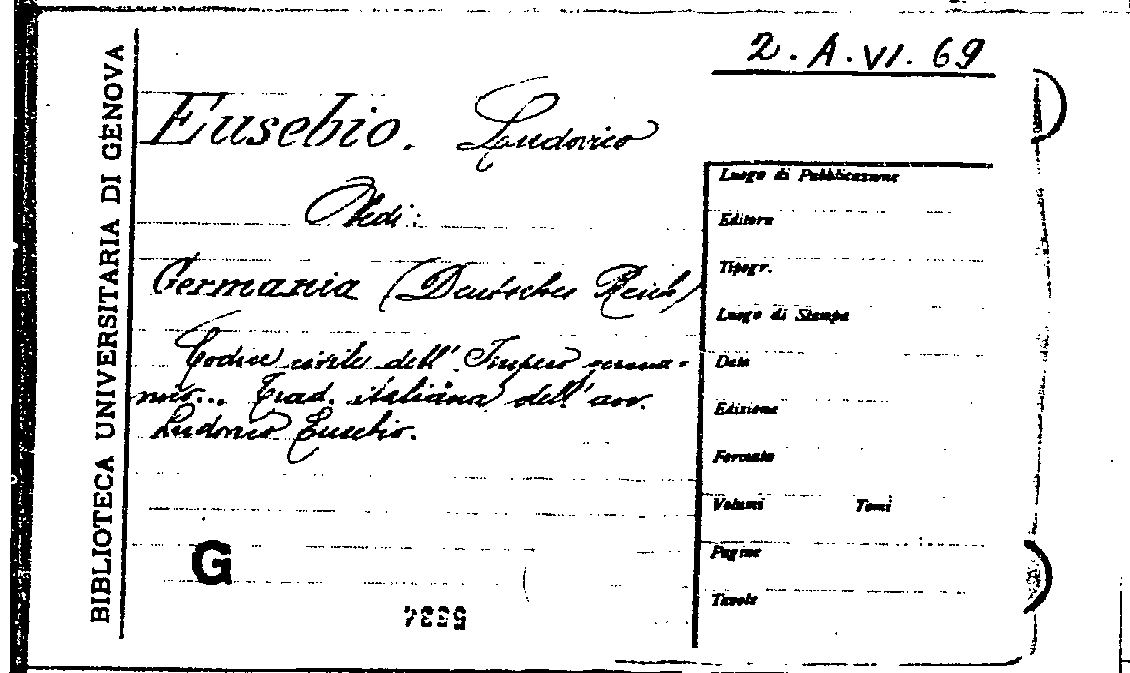 2. A. VI. 69
BIBLIOTECA UNIVERSITARIA DI GENOVA
Eusebio. Ludovico
Vedi:
Germania (Deutsches Reich)
Codice civile dell' Impero germa-
nico... Trad. italiana dell' avv.
Ludovico Eusebio.
Luogo di Pubblicazione
Editore
Tipogr.
Luogo di Stampa
Data
Edizione
Formato
Volumi Tomi
Pagine
Tavole
G